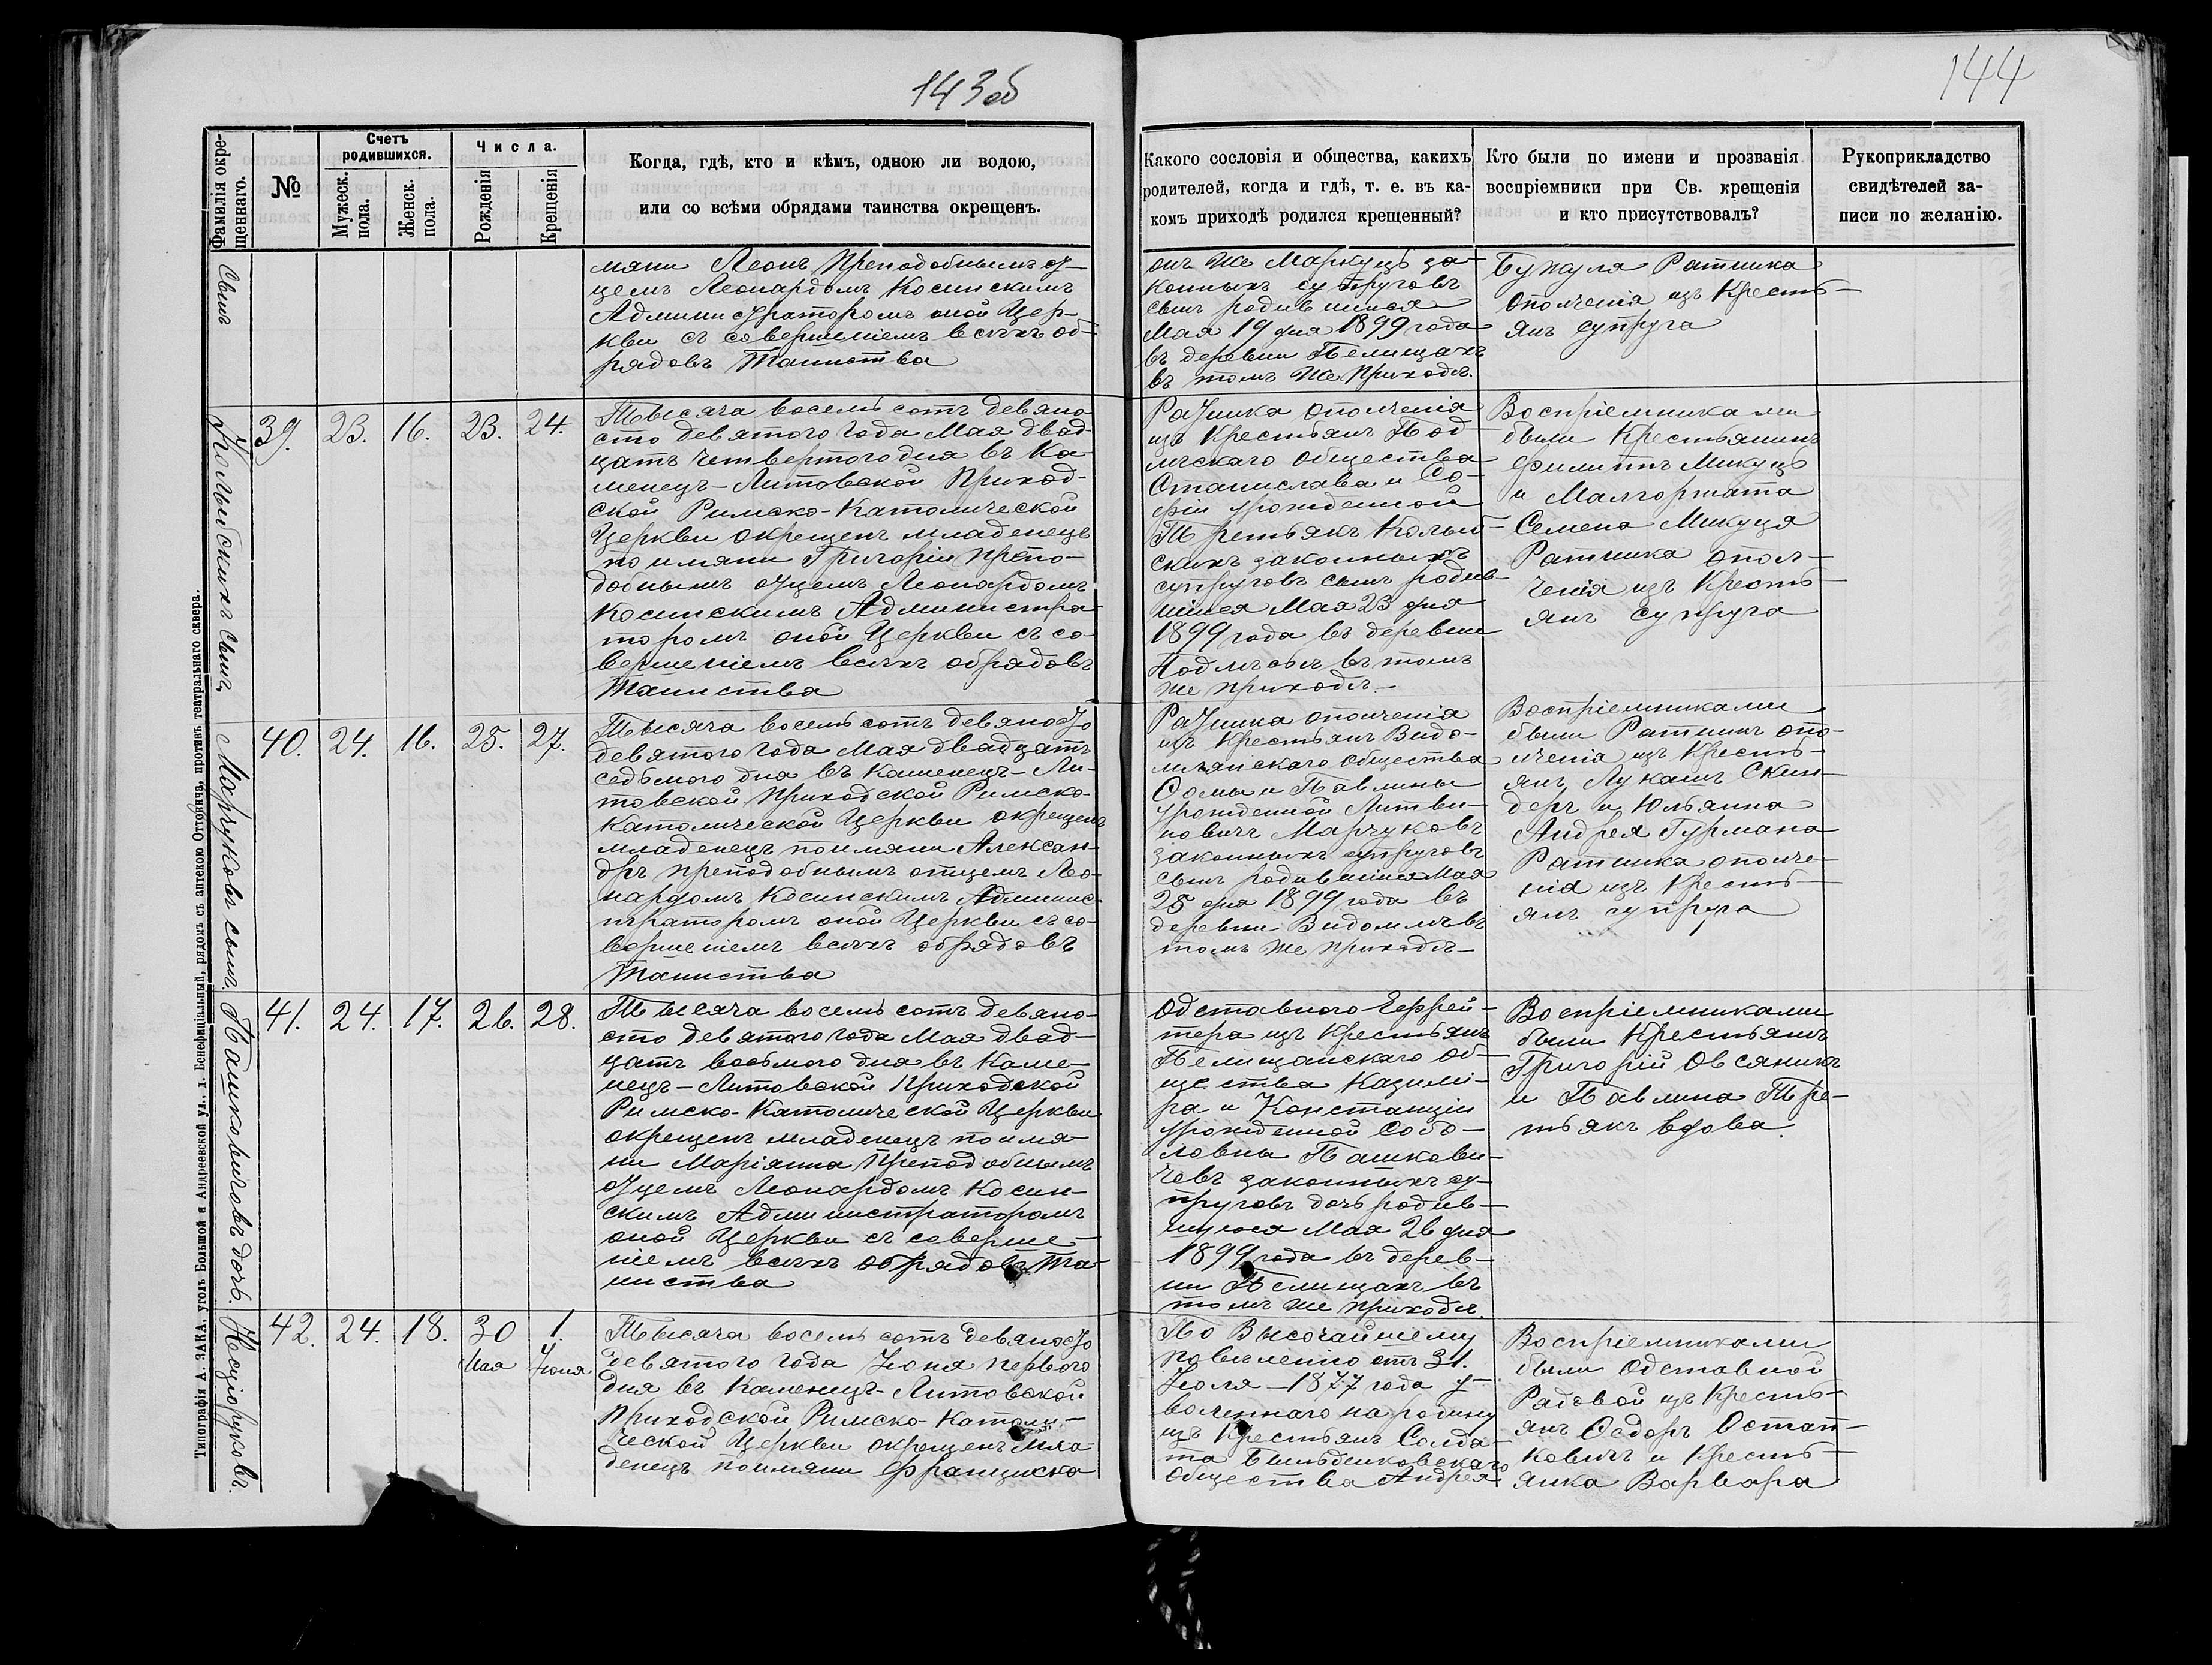 143об
144
Фамилія окре-
щеннаго.
№
Счетъ
родившихся.
Мужеск.
пола.
Женск.
пола.
Числа.
Рожденія
Крещенія
Когда, гдѣ, кто и кѣмъ, одною ли водою,
или со всѣми обрядами таинства окрещенъ.
Какого сословія и общества, какихъ
родителей, когда и гдѣ, т. е. въ ка-
комъ приходѣ родился крещенный?
Кто были по имени и прозванія
воспріемники при Св. крещеніи
и кто присутствовалъ?
Рукоприкладство
свидѣтелей за-
писи по желанію.
Сынъ
мяни Леонъ Преподобнымъ о-
цемъ Леонардомъ Косинскимъ
Администраторомъ оной Цер-
кви съ совершеніемъ всѣхъ об-
рядовъ Таинства
онъ же Марцуцъ за-
конныхъ супруговъ
сынъ родившійся
Мая 19 дня 1899 года
въ деревни Пелищахъ
въ томъ же Приходѣ.
Ратника
ополченія изъ Кресть-
янъ супруга
сынъ
39. 23. 16. 23. 24.
Тысяча восемь сотъ девяно-
сто девятого года Мая двад-
цать четвертого дня въ Ка-
менецъ-Литовской Приход-
ской Римско-Католической
Церкви окрещенъ младенецъ
по имяни Григорій Препо-
добнымъ отцемъ Леонардомъ
Косинскимъ Администра-
торомъ оной Церкви съ со-
вершеніемъ всѣхъ обрядовъ
Таинства
Ратника ополченія
изъ Крестьянъ Под-
лѣскаго общества
Станислава и Со-
фіи урожденной
Третьякъ
скихъ законныхъ
супруговъ сынъ родив-
шійся Мая 23 дня
1899 года въ деревни
Подлѣсьѣ въ томъ
же приходѣ.
Воспріемниками
были Крестьянинъ
Филиппъ Микуцъ
и Малгоржата
Семена Микуця
Ратника опол-
ченія изъ Кресть-
янъ супруга
Марчуковъ сынъ.
40. 24. 16. 25. 27.
Тысяча восемь сотъ девяносто
девятого года Мая двадцать
седьмого дня въ Каменецъ-Ли-
товской Приходской Римско-
Католической Церкви окрещенъ
младенецъ по имяни Алексан-
дръ преподобнымъ отцемъ Лео-
нардомъ Косинскимъ Админис-
траторомъ оной Церкви съ со-
вершеніемъ всѣхъ обрядовъ
Таинства
Ратника ополченія
изъ Крестьянъ Видо-
млянскаго общества
Ѳомы и Павлины
урожденной Литви-
новичъ Марчуковъ
законныхъ супруговъ
сынъ родившійся Мая
25 дня 1899 года въ
деревни Видомлѣ въ
томъ же приходѣ
Воспріемниками
были Ратникъ опо-
лченія изъ Кресть-
янъ Лукашъ Скин-
деръ и Юльянна
Андрея Гурмана
Ратника ополче-
нія изъ Кресть-
янъ супруга
Пашковичовъ дочь.
41. 24. 17. 26. 28.
Тысяча восемь сотъ девяно-
сто девятого года Мая двад-
цать восьмого дня въ Каме-
нецъ-Литовской Приходской
Римско-Католической Церкви
окрещенъ младенецъ по имя-
ни Маріянна Преподобнымъ
отцемъ Леонардомъ Косин-
скимъ Администраторомъ
оной Церкви съ соверше-
ніемъ всѣхъ обрядовъ Та-
инства
Одставного Ефрей-
тера изъ Крестьянъ
Пелищанскаго об-
щества Казими-
ра и Констанціи
урожденной Собо-
ловны Пашкови-
човъ законныхъ су-
пруговъ дочь родив-
шуюся Мая 26 дня
1899 года въ дерев-
ни Пелищахъ въ
томъ же приходѣ.
Воспріемниками
были Крестьянъ
Григорій Овсяникъ
и Павлина Тре-
тьякъ вдова.
42. 24. 18. 30 1.
Мая Іюня
Тысяча восемь сотъ девяносто
девятого года Іюня первого
дня въ Каменецъ-Литовской
Приходской Римско-Католи-
ческой Церкви окрещенъ мла-
денецъ по имяни Францишка
По Высочайшему
повелѣнію отъ 31.
Іюля 1877 года у-
воленнаго на родину
изъ Крестьянъ Солда-
та
общества Андрея
Воспріемниками
были Одставной
Рядовой изъ Кресть-
янъ Ѳедоръ Остап-
ковичъ и Кресть-
янка Варвара
Типографія А. ЗАКА, уголъ Большой и Андреевской ул., д. Бенефиціальный, рядомъ съ аптекою Оттовича, противъ театральнаго сквера.